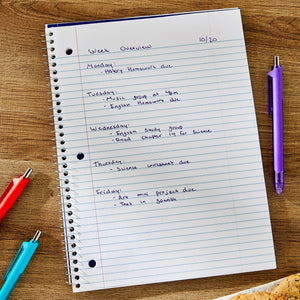 Week Overview 10/20
Monday:
- History Homework due
Tuesday:
- Music group at 4pm
- English Homework due
Wednesday:
- English Study group
- Read Chapter 14 for Science
Thursday:
- Science worksheet due
Friday:
- Art mini project due
- Test in Spanish